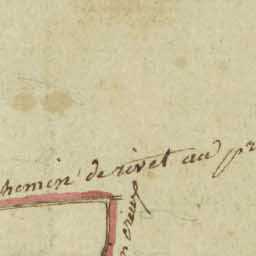 chemin de rivet au pr
n creux